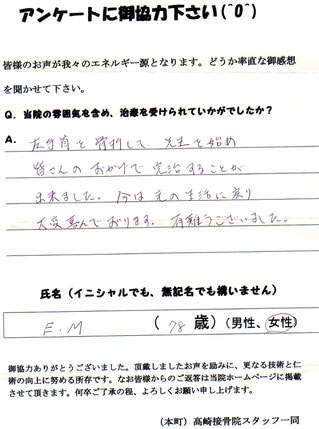 アンケートに御協力下さい(^0^)
皆様のお声が我々のエネルギー源となります。どうか率直な御感想
を聞かせて下さい。
Q. 当院の雰囲気を含め、治療を受けられていかがでしたか?
A. 左肩を骨折して 先生を始め
皆さんの おかげで 完治することが
出来ました。今は元の生活に戻り
大変喜んでおります。有難うございました。
氏名(イニシャルでも、無記名でも構いません)
E.M (78歳)(男性、女性)
御協力ありがとうございました。頂戴しましたお声を励みに、更なる技術と仁
術の向上に努める所存です。なお皆様からのご返答は当院ホームページに掲載
させて頂きます。何卒ご了承の程、よろしくお願い申し上げます。
(本町)高崎接骨院スタッフ一同